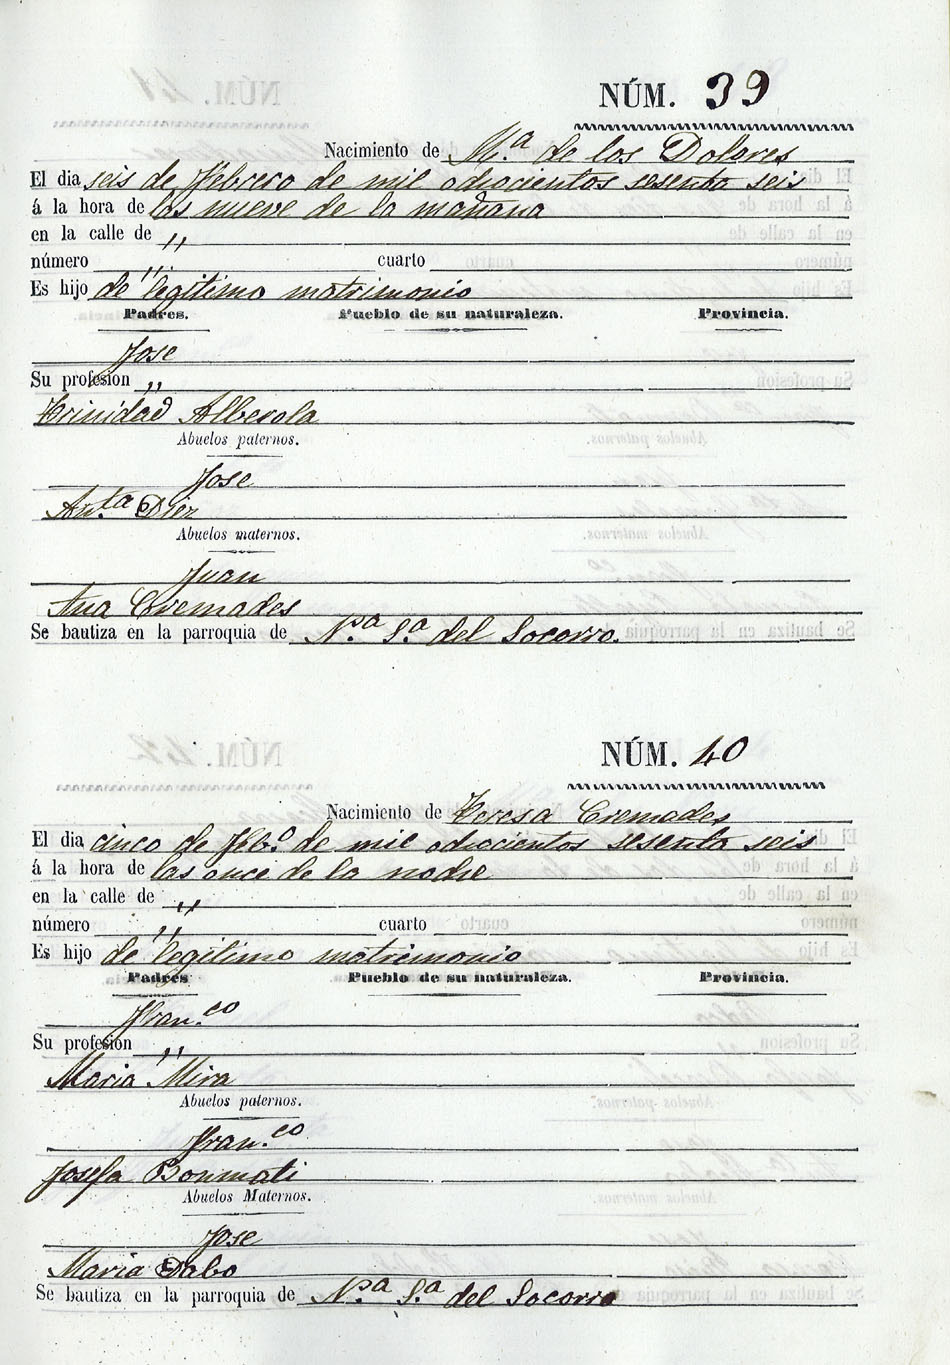 NÚM. 39
Nacimiento de Mª. de los Dolores
El dia seis de Febrero de mil ochocientos sesenta seis
á la hora de las nueve de la mañana
en la calle de "
número " cuarto
Es hijo de legitimo matrimonio
Padres. Pueblo de su naturaleza. Provincia.
Jose
Su profesion "
Trinidad Alberola
Abuelos paternos.
Jose
Antª. Diez
Abuelos maternos.
Juan
Ana Cremades
Se bautiza en la parroquia de Nª. Sª. del Socorro.
NÚM. 40
Nacimiento de Teresa Cremades
El dia cinco de Febº. de mil ochocientos sesenta seis
á la hora de las once de la noche
en la calle de "
número " cuarto
Es hijo de legitimo matrimonio
Padres Pueblo de su naturaleza. Provincia.
Fran.co
Su profesion "
Maria Mira
Abuelos paternos.
Fran.co
Josefa Boumati
Abuelos Maternos.
Jose
Maria Dabo
Se bautiza en la parroquia de Nª. Sª. del Socorro